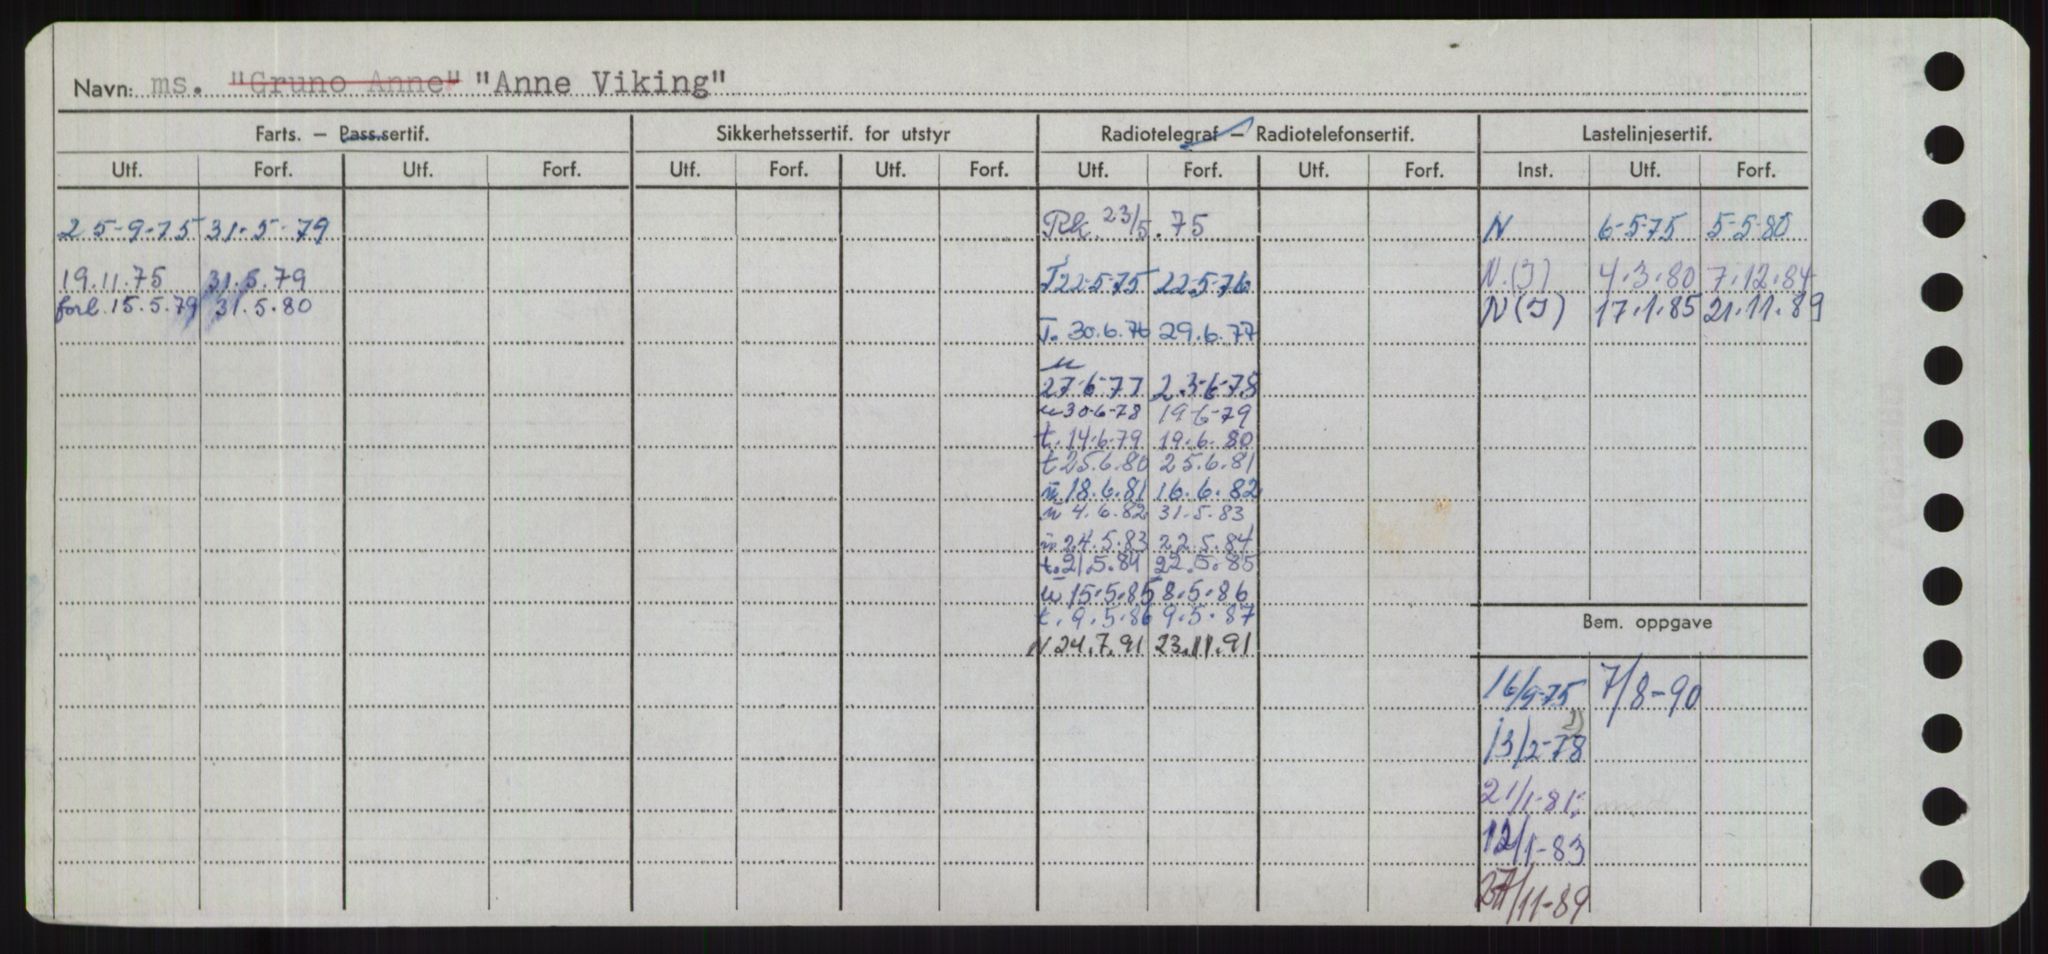 Navn: ms. "Gruno Anne" "Anne Viking"
Farts. — Pass.sertif. Sikkerhetssertif. for utstyr Radiotelegraf — Radiotelefonsertif. Lastelinjesertif.
Utf. Forf. Utf. Forf. Utf. Forf. Utf. Forf. Utf. Forf. Utf. Forf. Inst. Utf. Forf.
25-9-75 31-5-79 23/5.75 N 6-5-75 5-5-80
19.11.75 31.5.79 T 22-5-75 22-5-76 N.(I) 4.3.80 7.12.84
forl. 15.5.79 31.5.80 N(I) 17.1.85 21.11.89
T. 30.6.76 29.6.77
27-6-77 23-6-78
30-6-78 19-6-79
t. 14.6.79 19.6.80
t 25.6.80 25.6.81
18.6.81 16.6.82
4.6.82 31.5.83
24.5.83 22.5.84
t. 21.5.84 22.5.85
15.5.85 8.5.86
t. 9.5.86 9.5.87
N 24.7.91 23.11.91
Bem. oppgave
16/9-75 7/8-90
13/2-78
21/1-81
12/1-83
/11-89